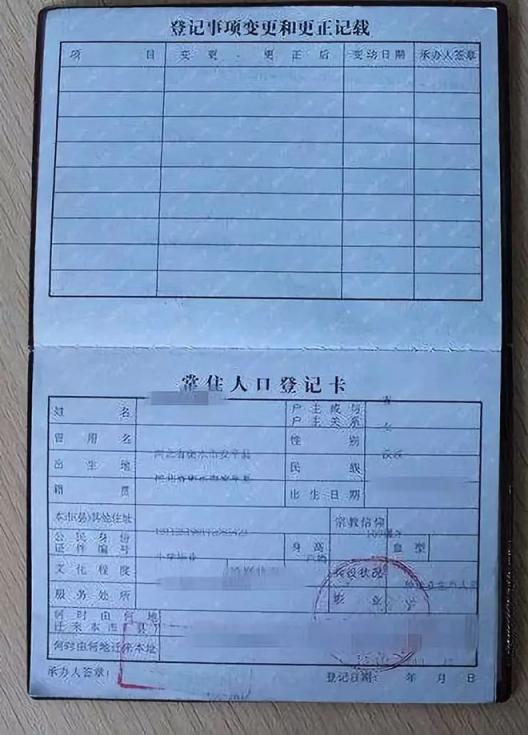 登记事项变更和更正记载
项 目 变 更 、 更 正 后 变动日期 承办人签章
常住人口登记卡
姓 名 户主或与户主关系
曾用名 性 别 女
出生地 河北省衡水市安平县 民 族 汉族
籍 贯 河北省衡水市安平县 出生日期
本市(县)其他住址 宗教信仰
公民身份证件编号 身 高 血 型
文化程度 小学毕业 婚姻状况 兵役状况
服务处所 职 业
何时由何地迁来本市(县)
何时由何地迁来本址
承办人签章: 登记日期: 年 月 日